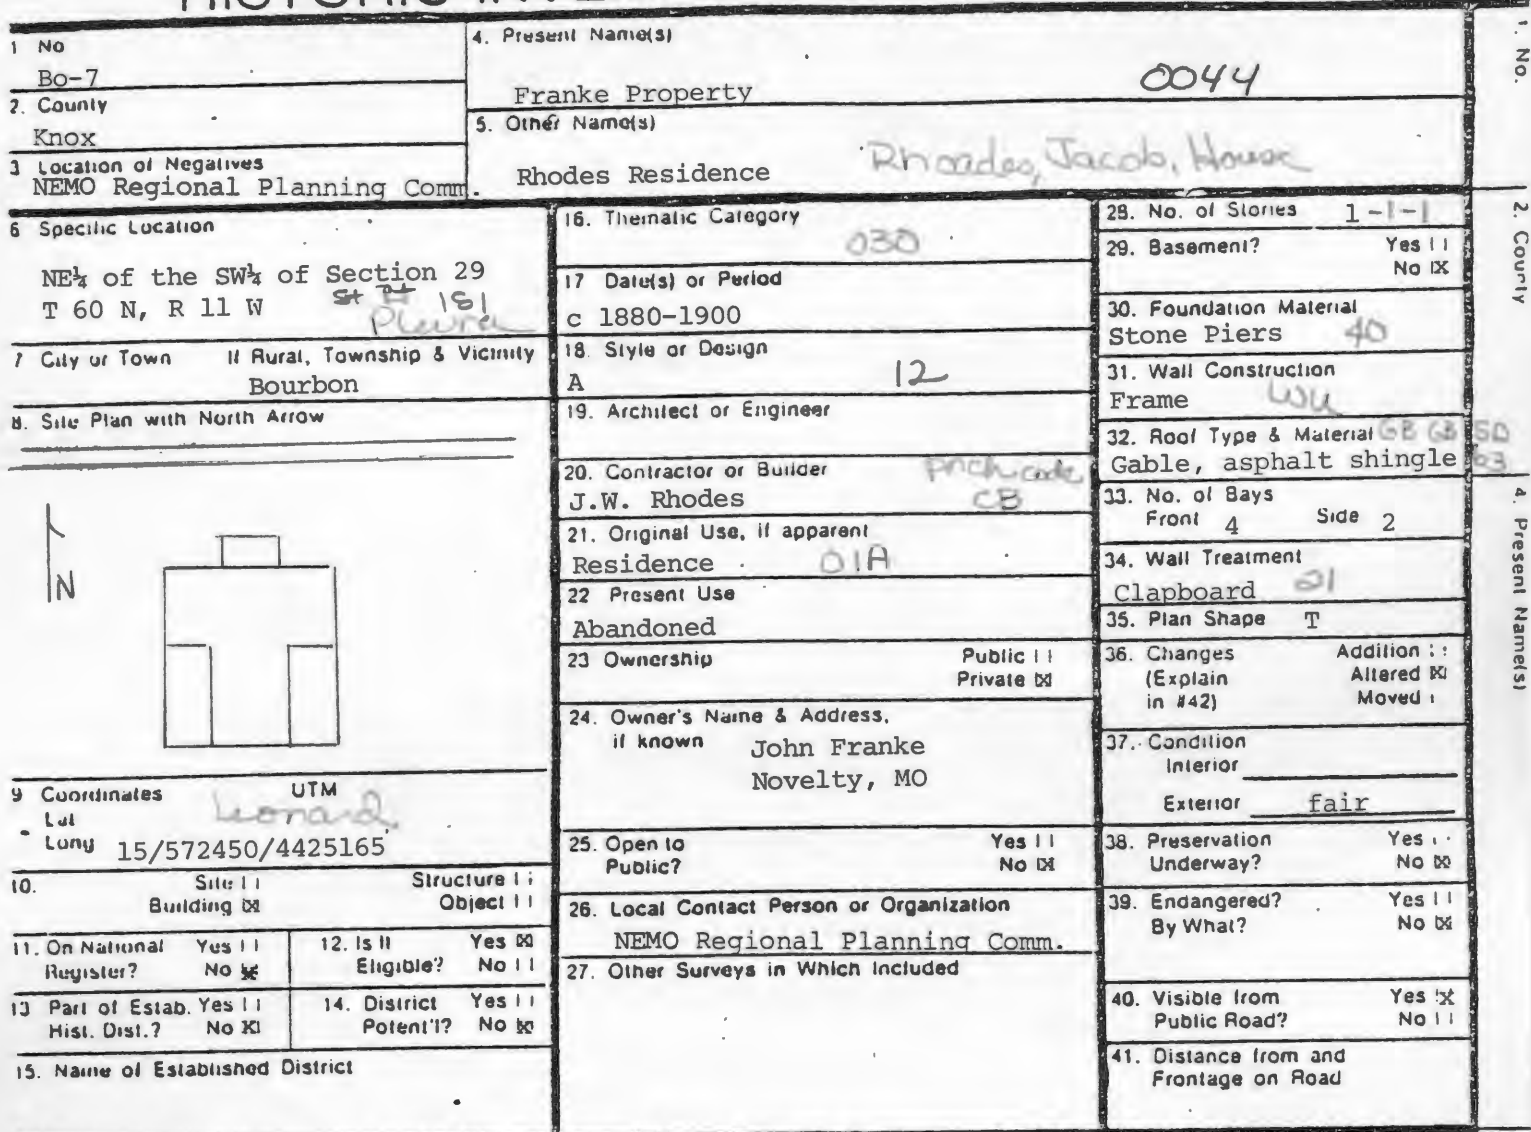 1 No
Bo-7
2. County
Knox
3 Location of Negatives
NEMO Regional Planning Comm.
4. Present Name(s)
Franke Property
0044
5. Other Name(s)
Rhodes Residence
Rhoades, Jacob, House
6 Specific Location
NE¼ of the SW¼ of Section 29
T 60 N, R 11 W
7 City or Town If Rural, Township & Vicinity
Bourbon
8. Site Plan with North Arrow
N
9 Coordinates UTM
Lat
Long 15/572450/4425165
Leonard
10. Site Structure
Building X Object
11. On National Register? Yes No X
12. Is It Eligible? Yes X No
13 Part of Estab. Hist. Dist.? Yes No X
14. District Potent'l? Yes No X
15. Name of Established District
16. Thematic Category
030
17 Date(s) or Period
c 1880-1900
18. Style or Design
A 12
19. Architect or Engineer
20. Contractor or Builder
J.W. Rhodes
CB
21. Original Use, if apparent
Residence 01A
22 Present Use
Abandoned
23 Ownership Public
Private X
24. Owner's Name & Address,
if known
John Franke
Novelty, MO
25. Open to Yes
Public? No X
26. Local Contact Person or Organization
NEMO Regional Planning Comm.
27. Other Surveys in Which Included
28. No. of Stories 1-1-1
29. Basement? Yes
No X
30. Foundation Material
Stone Piers 40
31. Wall Construction
Frame WU
32. Roof Type & Material GB GB SD
Gable, asphalt shingle 63
33. No. of Bays
Front 4 Side 2
34. Wall Treatment
Clapboard 21
35. Plan Shape T
36. Changes Addition
(Explain Altered X
in #42) Moved
37. Condition
Interior
Exterior fair
38. Preservation Yes
Underway? No X
39. Endangered? Yes
By What? No X
40. Visible from Yes X
Public Road? No
41. Distance from and
Frontage on Road
1. No.
2. County
4. Present Name(s)